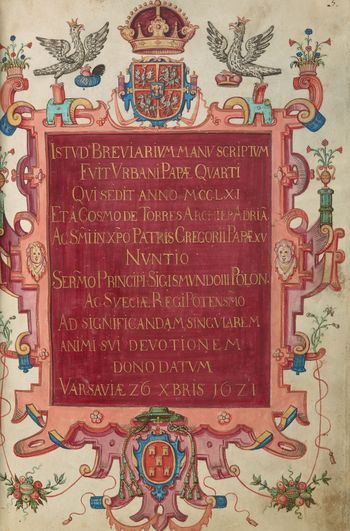 5.
ISTVD BREVIARIVM MANV SCRIPTVM
FVIT VRBANI PAPÆ QVARTI
QVI SEDIT ANNO MCCLXI
ET A COSMO DE TORRES ARCHIEP ADRIA.
AC SMI IN XPO PATRIS GREGORII PAPÆ XV
NVNTIO
SERMO PRINCIPI SIGISMVNDO III POLON.
AC SVECIÆ REGI POTENSMO
AD SIGNIFICANDAM SINGVLAREM
ANIMI SVI DEVOTIONEM
DONO DATVM
VARSAVIÆ 26 XBRIS 1621